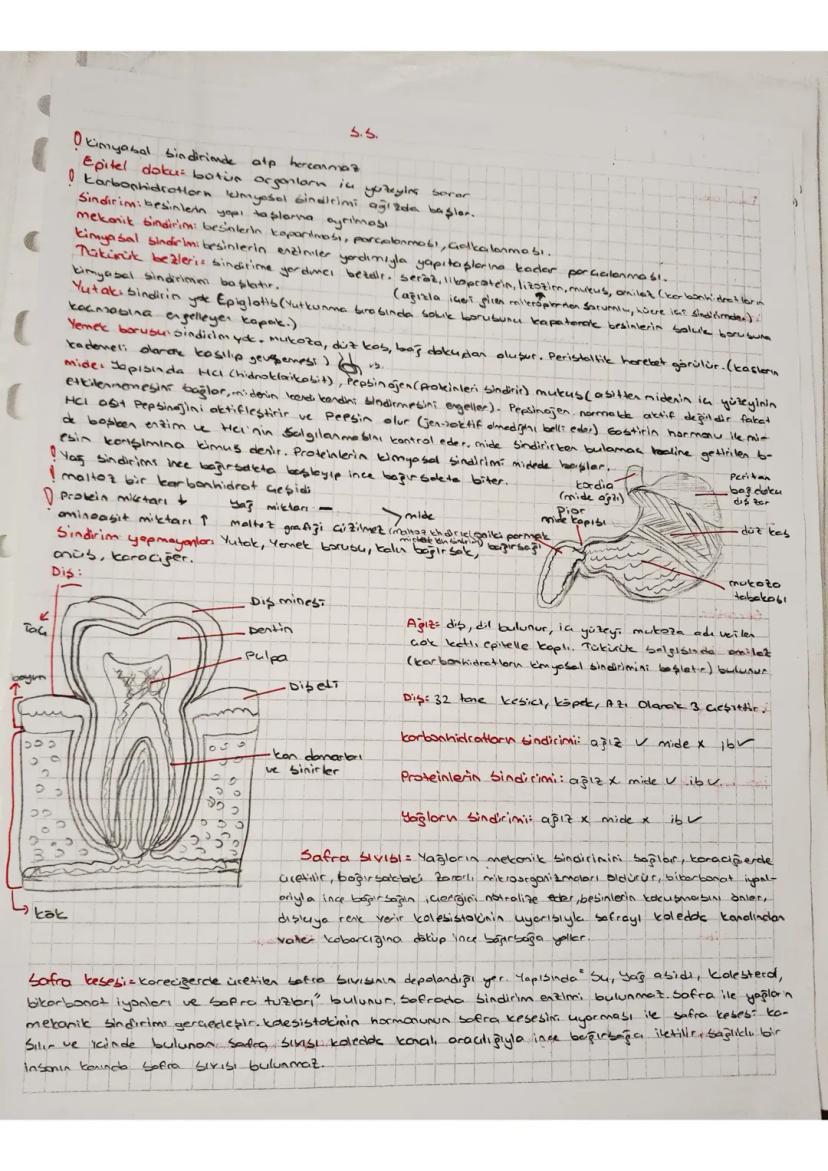 S.S.
! Kimyasal sindirimde atp harcanmaz
Epitel doku: bütün organların iç yüzeyini sarar
! Karbonhidratların kimyasal sindirimi ağızda başlar.
Sindirim: besinlerin yapı taşlarına ayrılması
mekanik sindirim: besinlerin koparılması, parçalanması, çalkalanması.
kimyasal sindirim: besinlerin enzimler yardımıyla yapıtaşlarına kadar parçalanması.
Tükürük bezleri: sindirime yardımcı bezdir. seröz, lipoprotein, lizozim, mukus, amilaz (karbonhidratların
kimyasal sindirimini başlatır.
(ağızla içeri giren mikroplardan sorumlu, hücre içi sindirimden)
Yutak: sindirim yok Epiglotis (Yutkunma sırasında soluk borusunu kapatarak besinlerin soluk borusuna
kaçmasına engelleyen kapak.)
Yemek borusu: sindirim yok. mukoza, düz kas, bağ dokudan oluşur. Peristaltik hareket görülür. (kasların
kademeli olarak kasılıp gevşemesi)
mide: Yapısında HCl (hidroklorikasit), Pepsinojen (proteinleri sindirir) mukus (asitten midenin iç yüzeyinin
etkilenmemesini sağlar, midenin kendi kendini sindirmesini engeller). Pepsinojen normalde aktif değildir fakat
HCl asit Pepsinojini aktifleştirir ve Pepsin olur (jen=aktif olmadığını belli eder) Gastirin hormonu ile mi-
de başken enzim ve HCl'nin salgılanmasını kontrol eder. mide sindirirken bulamaç haline getirilen b-
esin karışımına kimus denir. Proteinlerin kimyasal sindirimi midede başlar.
! Yağ sindirimi ince bağırsakta başlayıp ince bağırsakta biter.
! maltoz bir karbonhidrat çeşidi
! Protein miktarı ↓ yağ miktarı —
aminoasit miktarı ↑ maltoz grafiği çizilmez
mide
Sindirim yapmayanlar: Yutak, Yemek borusu, kalın bağırsak,
anüs, karaciğer.
kardia
(mide ağzı)
Pilor
mide kapısı
Oniki parmak
bağırsağı
Periton
bağ doku
dış zar
düz kas
mukoza
tabakası
Diş:
Taç
boyun
kök
Diş minesi
Dentin
Pulpa
Diş eti
kan damarları
ve sinirler
Ağız: diş, dil bulunur, iç yüzeyi mukoza adı verilen
çok katlı epitelle kaplı. Tükürük salgısında amilaz
(karbonhidratların kimyasal sindirimini başlatır) bulunur
Diş: 32 tane kesici, köpek, Azı olarak 3 çeşittir.
karbonhidratların sindirimi: ağız ✓ mide x ib ✓
Proteinlerin sindirimi: ağız x mide ✓ ib ✓
Yağların sindirimi: ağız x mide x ib ✓
Safra sıvısı = Yağların mekanik sindirimini sağlar, karaciğerde
üretilir, bağırsaktaki zararlı mikroorganizmaları öldürür, bikarbonat iyonl-
arıyla ince bağırsağın içeriğini nötralize eder, besinlerin kokuşmasını önler,
dışkıya renk verir kolesistokinin uyarısıyla safrayı koledok kanalından
vater kabarcığına döküp ince bağırsağa yollar.
Safra kesesi = karaciğerde üretilen safra sıvısının depolandığı yer. Yapısında "Su, yağ asidi, kolesterol,
bikarbonat iyonları ve safra tuzları" bulunur. Safrada sindirim enzimi bulunmaz. Safra ile yağların
mekanik sindirimi gerçekleşir. kolesistokinin hormonunun safra kesesini uyarması ile safra kesesi ka-
sılır ve içinde bulunan safra sıvısı koledok kanalı aracılığıyla ince bağırsağa iletilir. Sağlıklı bir
insanın kanında safra sıvısı bulunmaz.